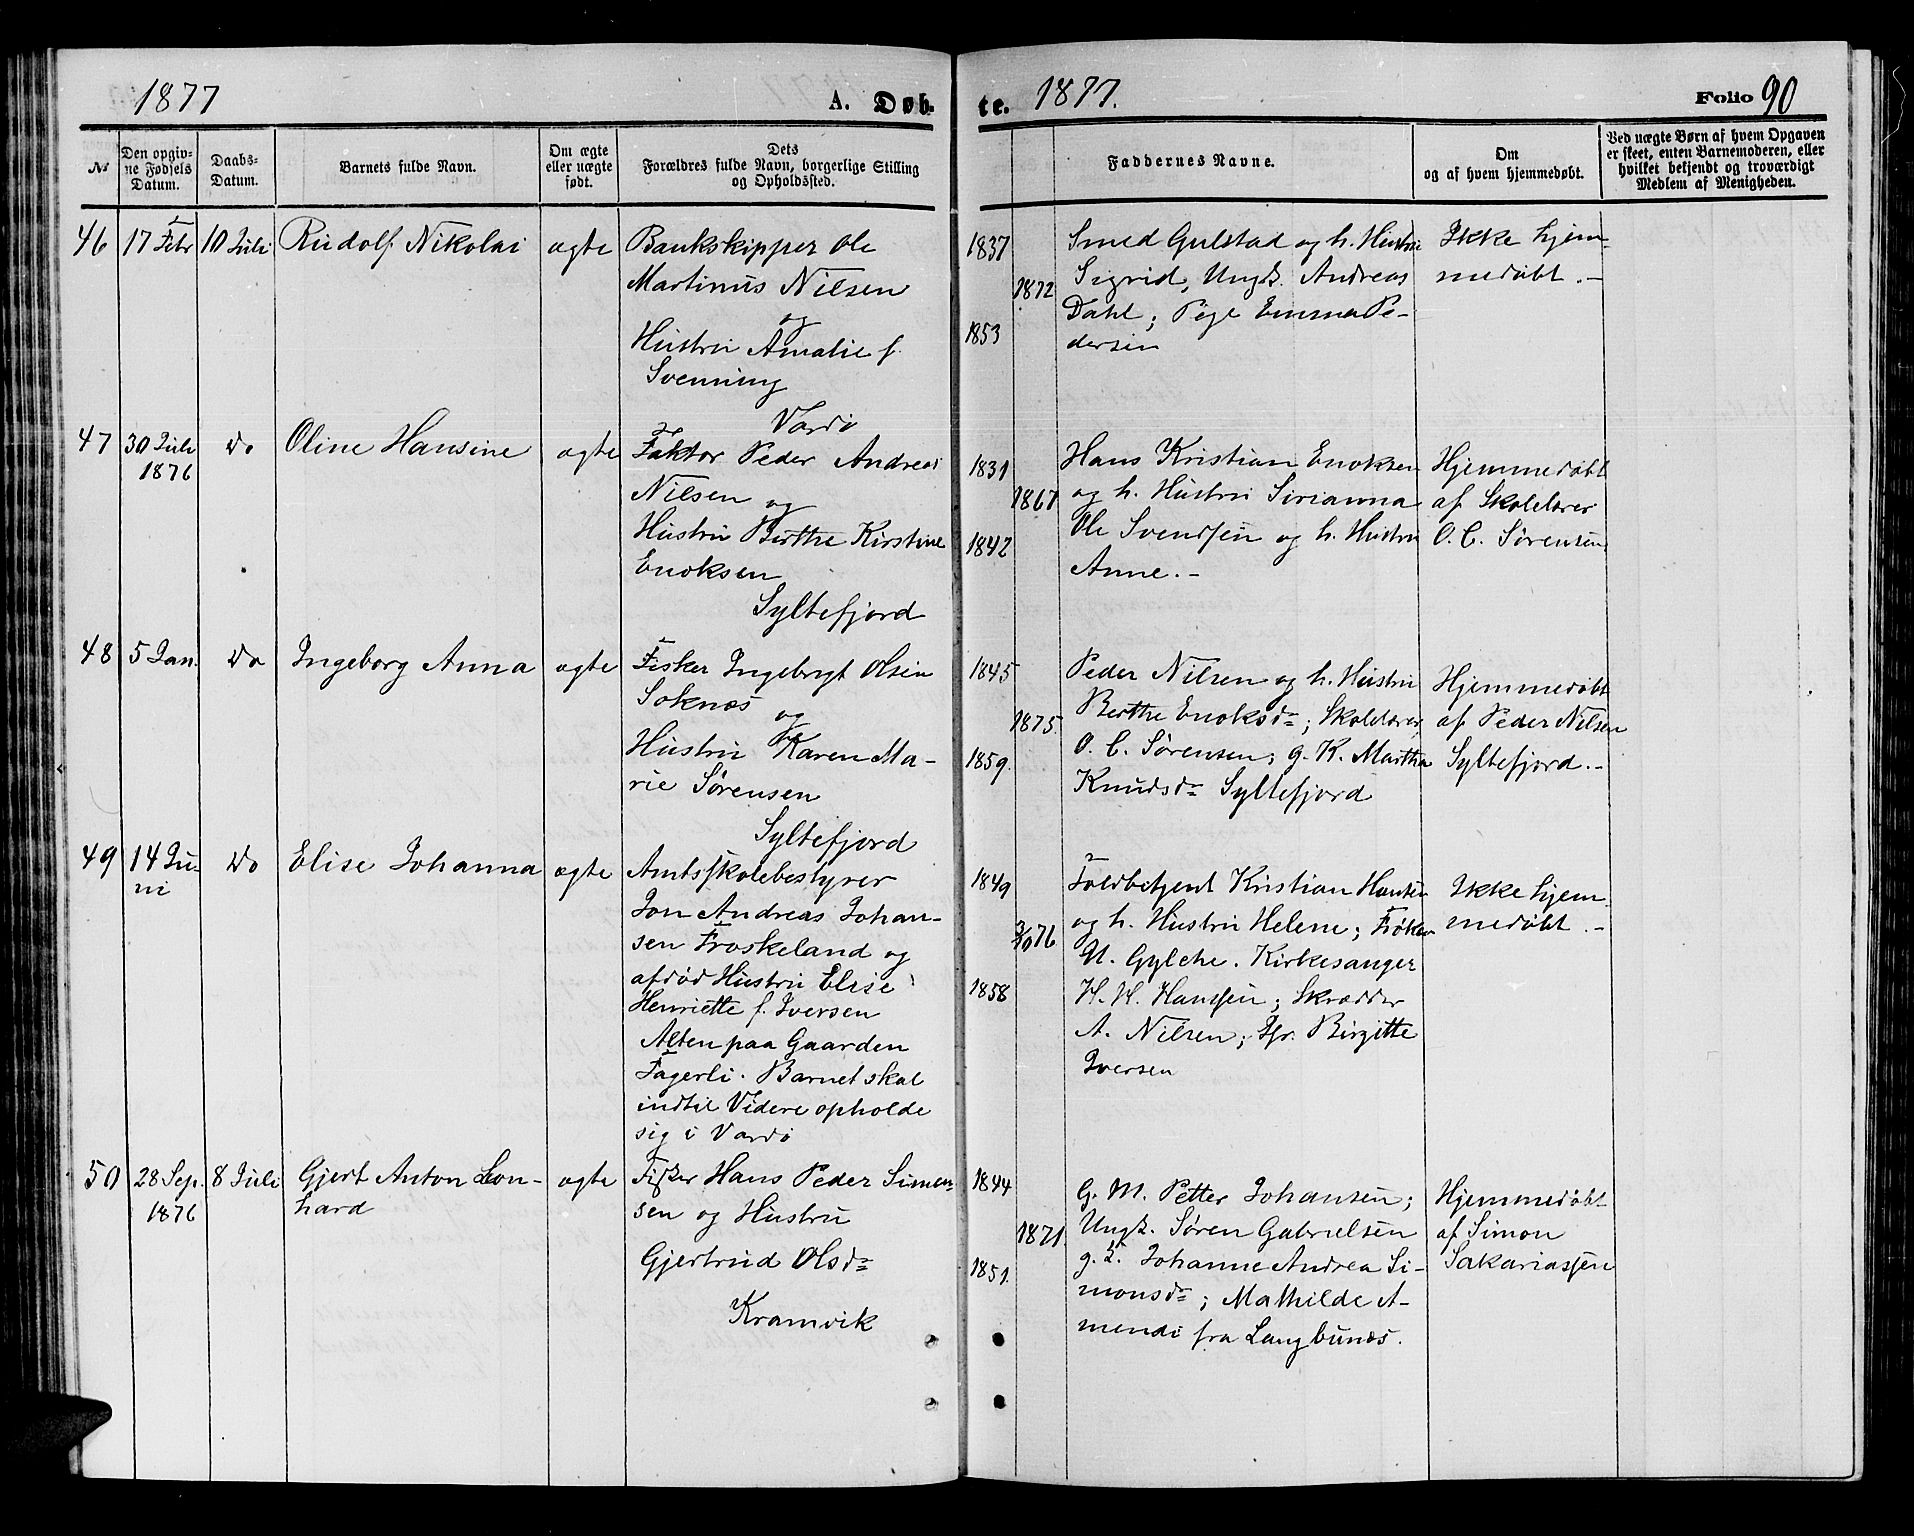 1877
A. Døb-
te.
1877.
Folio 90
№
Den opgiv-
ne Fødsels
Datum.
Daabs-
Datum.
Barnets fulde Navn.
Om ægte
eller uægte
født.
Dets
Forældres fulde Navn, borgerlige Stilling
og Opholdssted.
Faddernes Navne.
Om
og af hvem hjemmedøbt.
Ved uægte Børn af hvem Opgaven
er skeet, enten Barnemoderen, eller
hvilket bekjendt og troværdigt
Medlem af Menigheden.
46
17 Febr
10 Juli
Rudolf Nikolai
ægte
Bankskipper Ole
Martinus Nilsen
og
Hustru Amalie f.
Svenning
Vardø
1837
1872
1853
Smed Gulstad og h. Hustru
Sigrid, Ungk. Andreas
Dahl; Pige Emma Pe-
dersen
Ikke hjem-
medøbt. -
47
30 Juli
1876
Do
Oline Hansine
ægte
Faktor Peder Andreas
Nilsen og
Hustru Berthe Kirstine
Enoksen
Syltefjord
1831
1867
1842
Hans Kristian Enoksen
og h. Hustru Sirianna
Ole Svendsen og h. Hustru
Anne. -
Hjemmedøbt
af Skolelærer
O. C. Sørensen
48
5 Jan.
Do
Ingeborg Anna
ægte
Fisker Ingebrigt Olsen
Soknæs og
Hustru Karen Ma-
rie Sørensen
Syltefjord
1845
1875.
1859.
Peder Nilsen og h. Hustru
Berthe Enoksdr; Skolelærer
O. C. Sørensen; g. K. Martha
Knudsdr Syltefjord
Hjemmedøbt
af Peder Nilsen
Syltefjord. -
49
14 Ju-
ni
Do
Elise Johanna
ægte
Amtsskolebestyrer
Jon Andreas Johan-
sen Froskeland og
afdød Hustru Elise
Henriette f. Iversen
Alten paa Gaarden
Fagerli. Barnet skal
indtil Videre opholde
sig i Vardø
1849
3/10 76
1858
Toldbetjent Kristian Hansen
og h. Hustru Helene; Frøken
U. Gylche. Kirkesanger
H. H. Hanssen; Skrædder
A. Nilsen; Jfr. Birgitte
Iversen
Ikke hjem-
medøbt. -
50
28 Sep.
1876
8 Juli
Gjert Anton Leon-
hard
ægte
Fisker Hans Peder Simon-
sen og Hustru
Gjertrud Olsdr
Kramvik
1844
1871.
1851.
G. M. Petter Johansen;
Ungk. Søren Gabrielsen
g. K. Johanne Andrea Si-
monsdr; Mathilde A-
mendi fra Langbunæs.
Hjemmedøbt
af Simon
Sakariassen